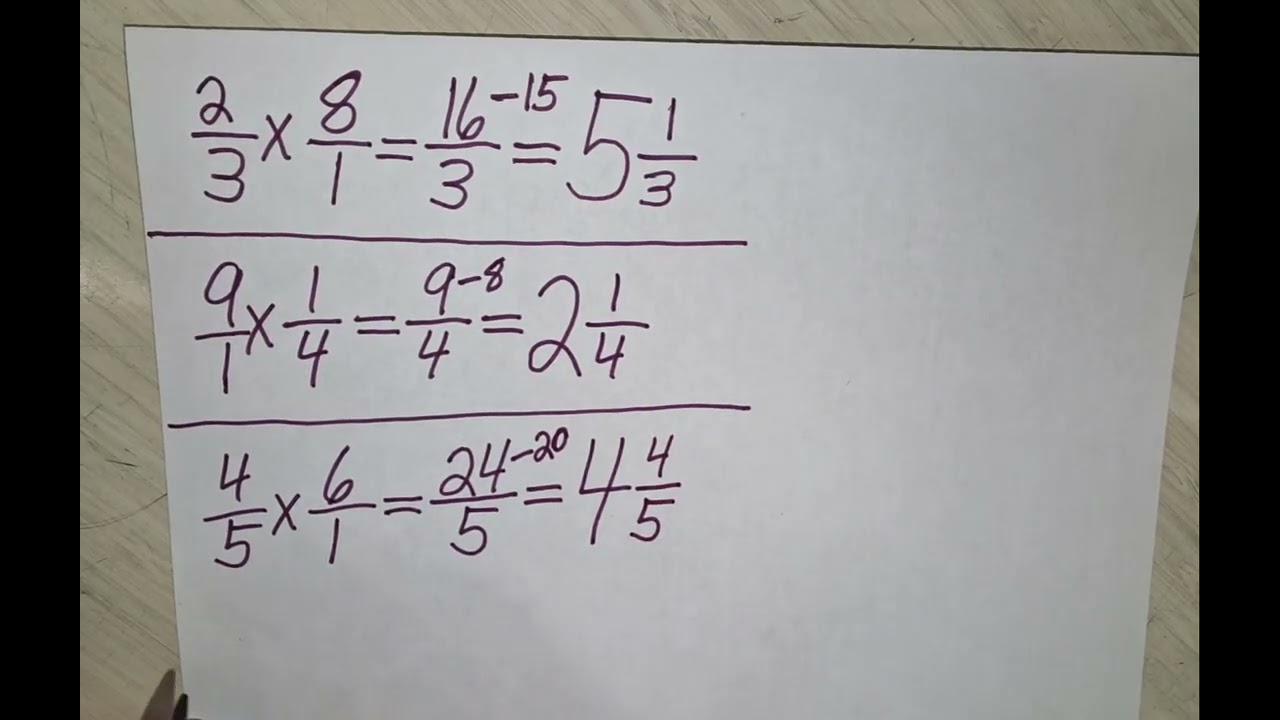 2/3 x 8/1 = 16-15/3 = 5 1/3
9/1 x 1/4 = 9-8/4 = 2 1/4
4/5 x 6/1 = 24-20/5 = 4 4/5